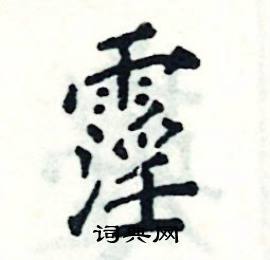 霪
词典网